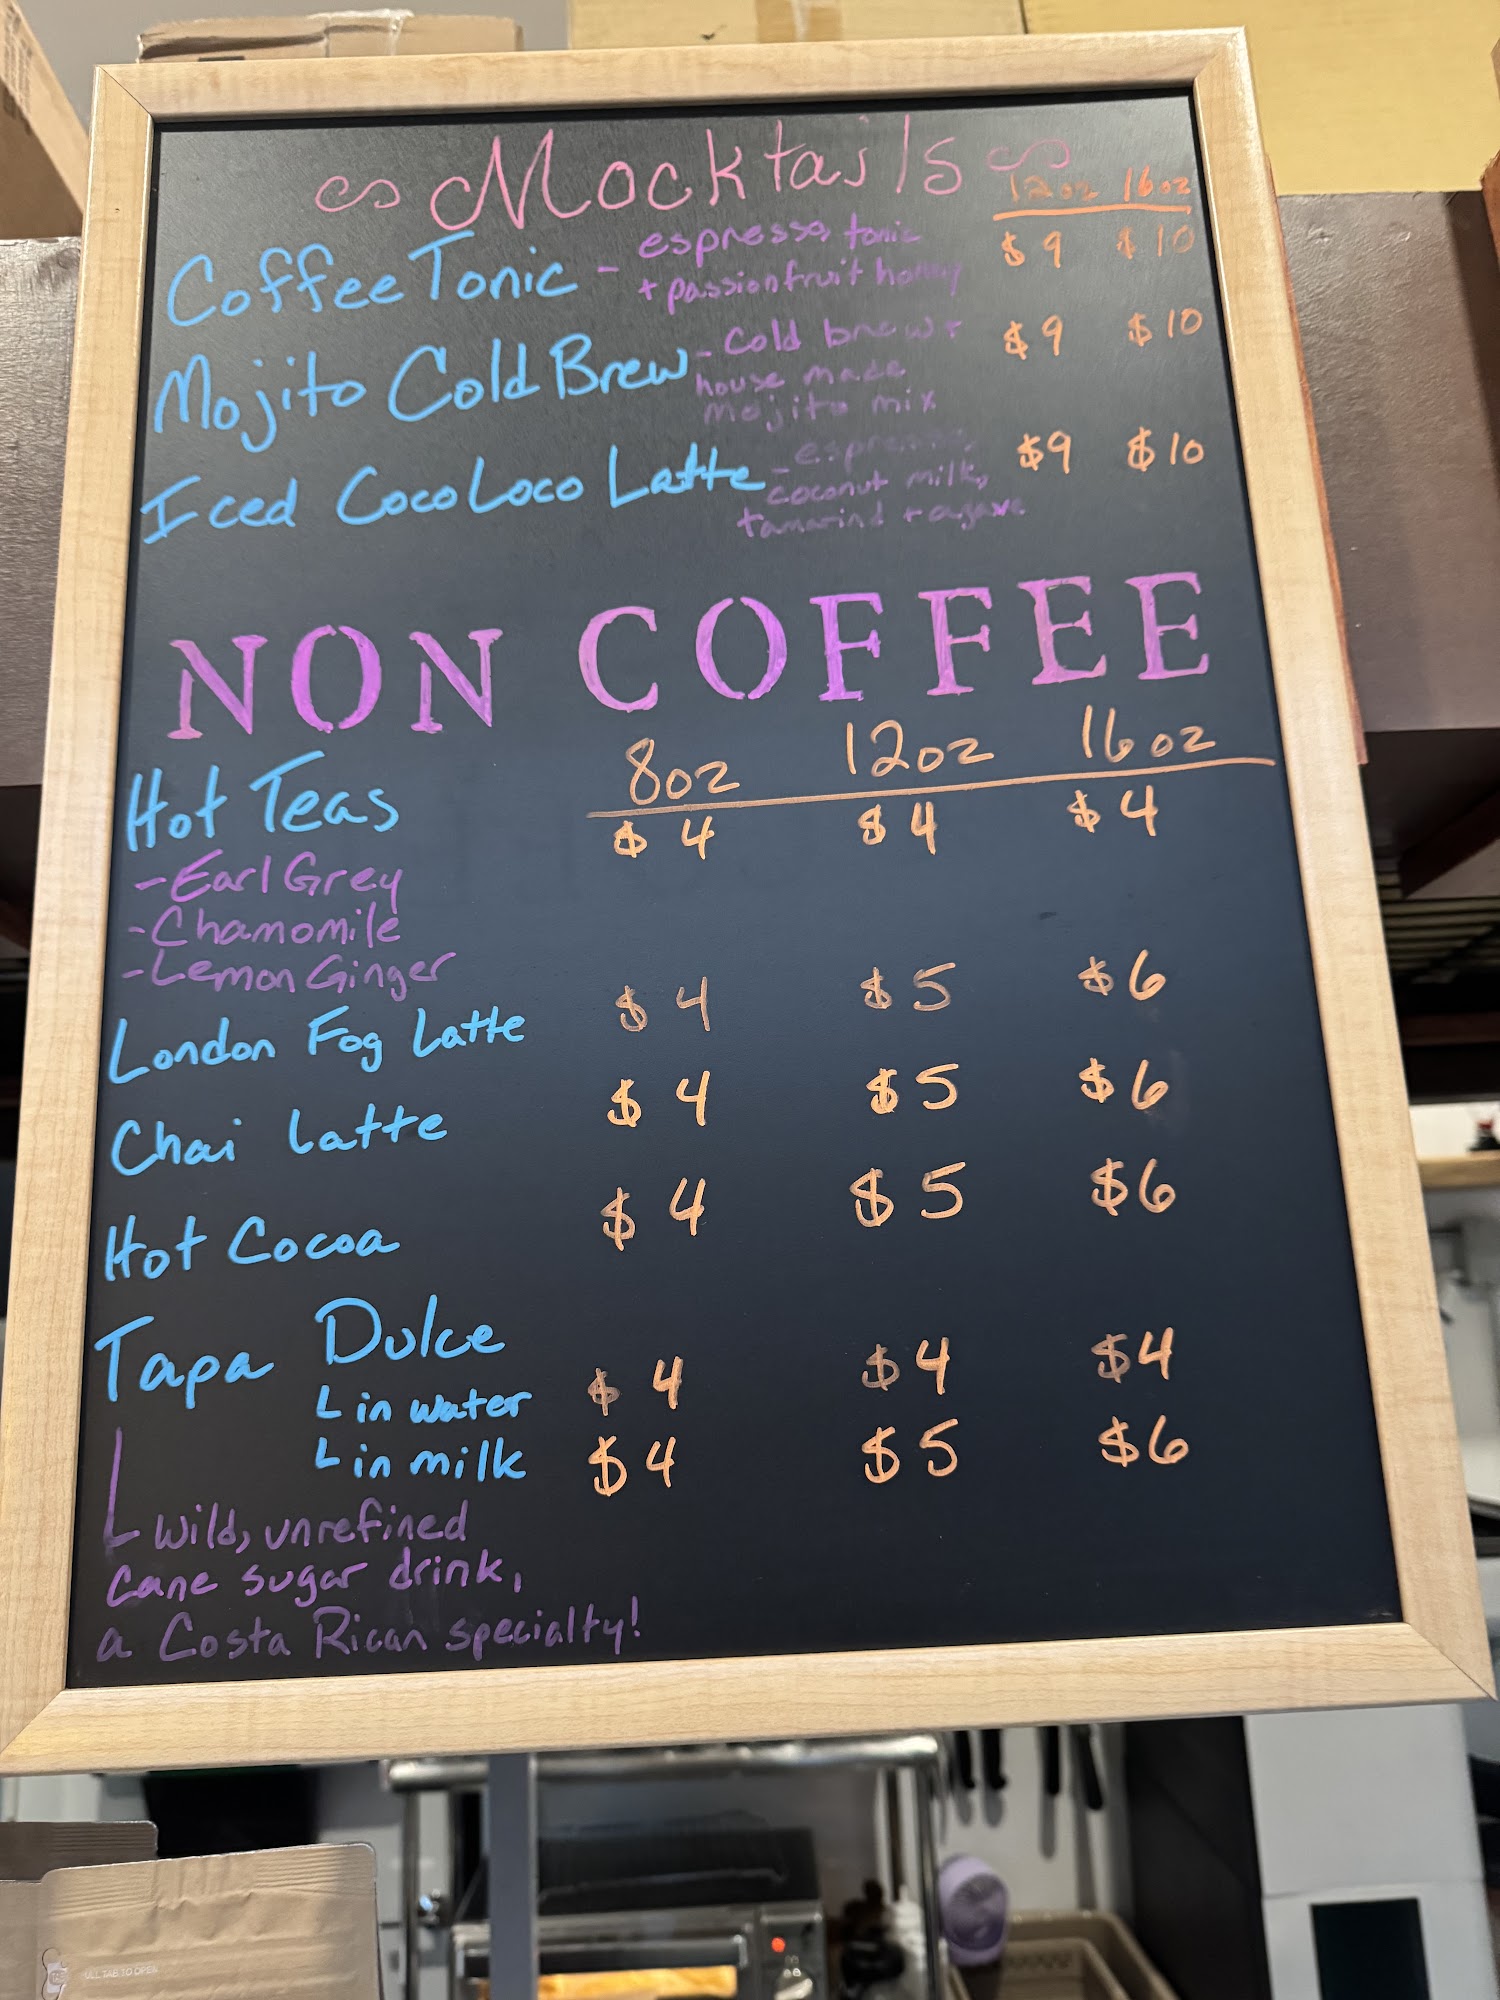 Mocktails
12oz 16oz
Coffee Tonic - espresso, tonic $9 $10
+ passionfruit honey
Mojito Cold Brew - cold brew + $9 $10
house made
mojito mix
Iced Coco Loco Latte - espresso, $9 $10
coconut milk,
tamarind + agave
NON COFFEE
8oz 12oz 16oz
Hot Teas $4 $4 $4
- Earl Grey
- Chamomile
- Lemon Ginger
London Fog Latte $4 $5 $6
Chai Latte $4 $5 $6
Hot Cocoa $4 $5 $6
Tapa Dulce
in water $4 $4 $4
in milk $4 $5 $6
wild, unrefined
cane sugar drink,
a Costa Rican specialty!
PULL TAB TO OPEN